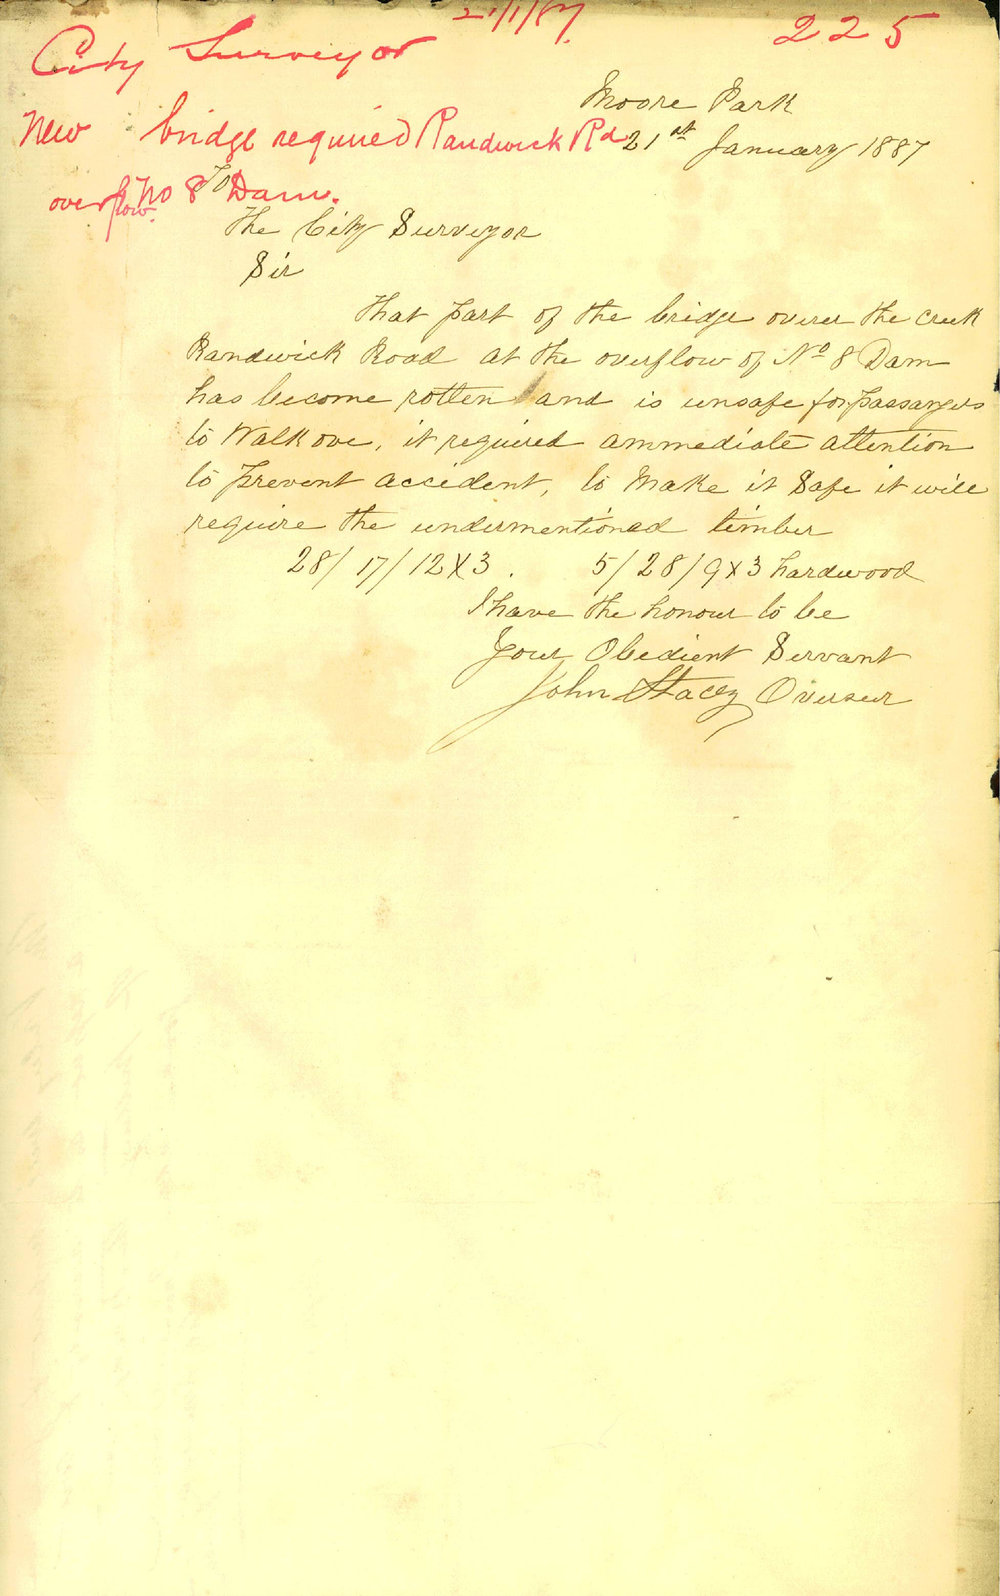 21/1/87.
225
City Surveyor
New bridge required Randwick Rd
overflow No 8 Dam.
Moore Park
21st January 1887
To
The City Surveyor
Sir
That part of the bridge overer the creek
Randwick Road at the overflow of No 8 Dam
has become rotten and is unsafe for passangers
to Walk ove, it required ammediate attention
to prevent accident, to Make it Safe it will
require the undermentioned timber
28/ 17/ 12 X 3. 5/ 28/ 9 x 3 hardwood
I have the honour to be
Your Obedient Servant
John Stacey Overseer